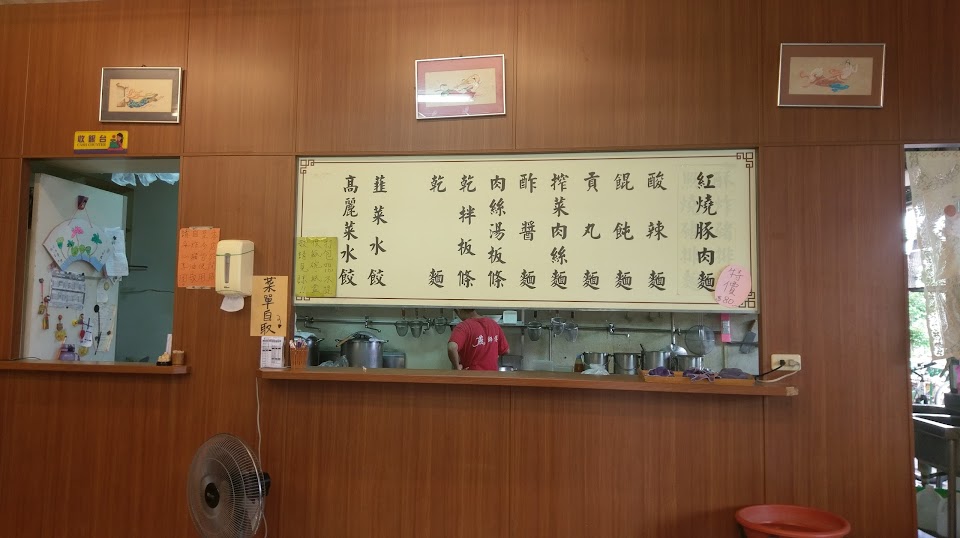 紅燒豚肉麵
酸辣麵
餛飩麵
貢丸麵
搾菜肉絲麵
酢醬麵
肉絲湯板條
乾拌板條
乾麵
韭菜水餃
高麗菜水餃
特價
$80
收銀台
菜單自取